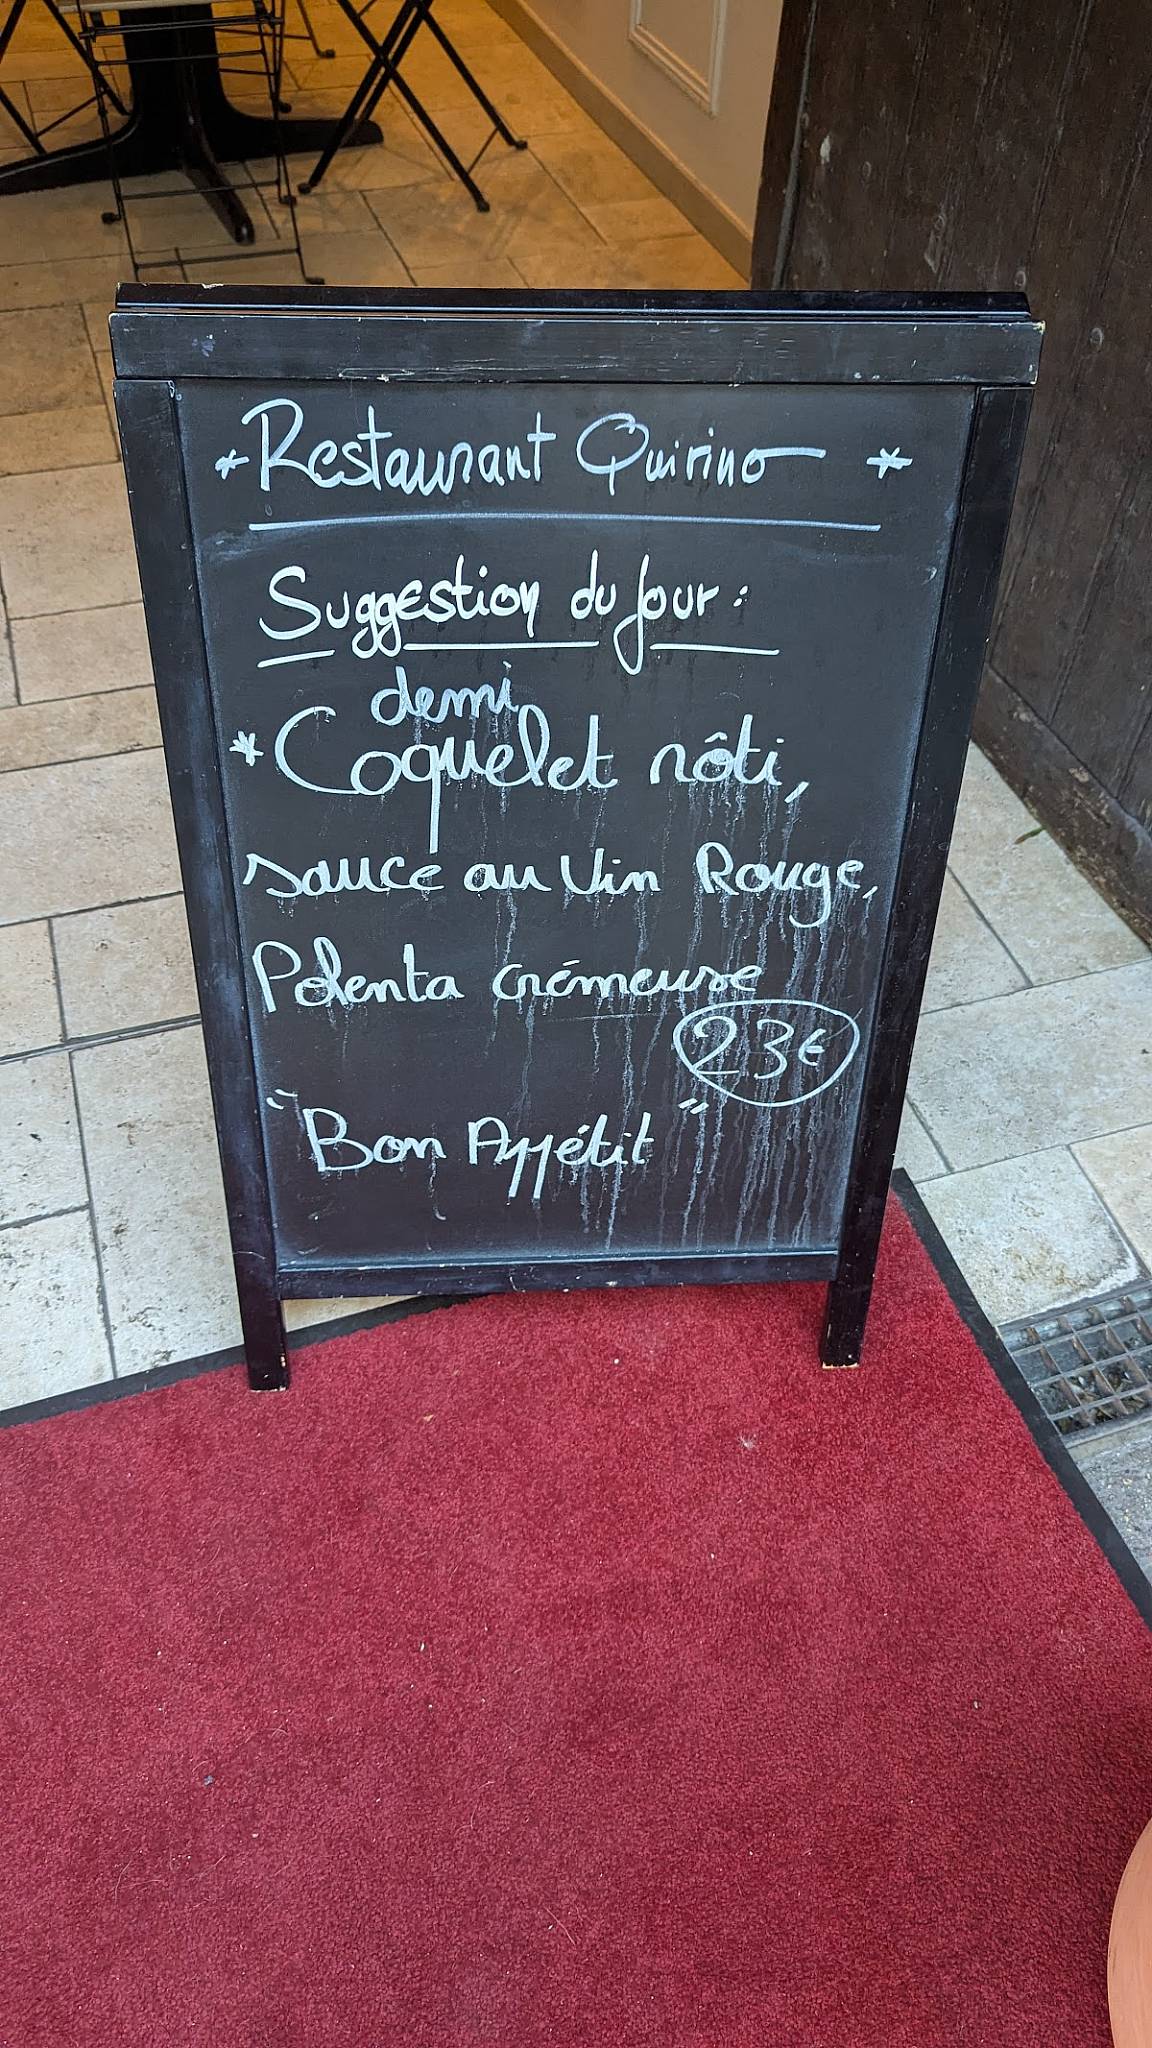 *Restaurant Quirino *
Suggestion du Jour :
demi
*Coquelet rôti,
sauce au Vin Rouge,
Polenta crémeuse
23€
"Bon Appétit"